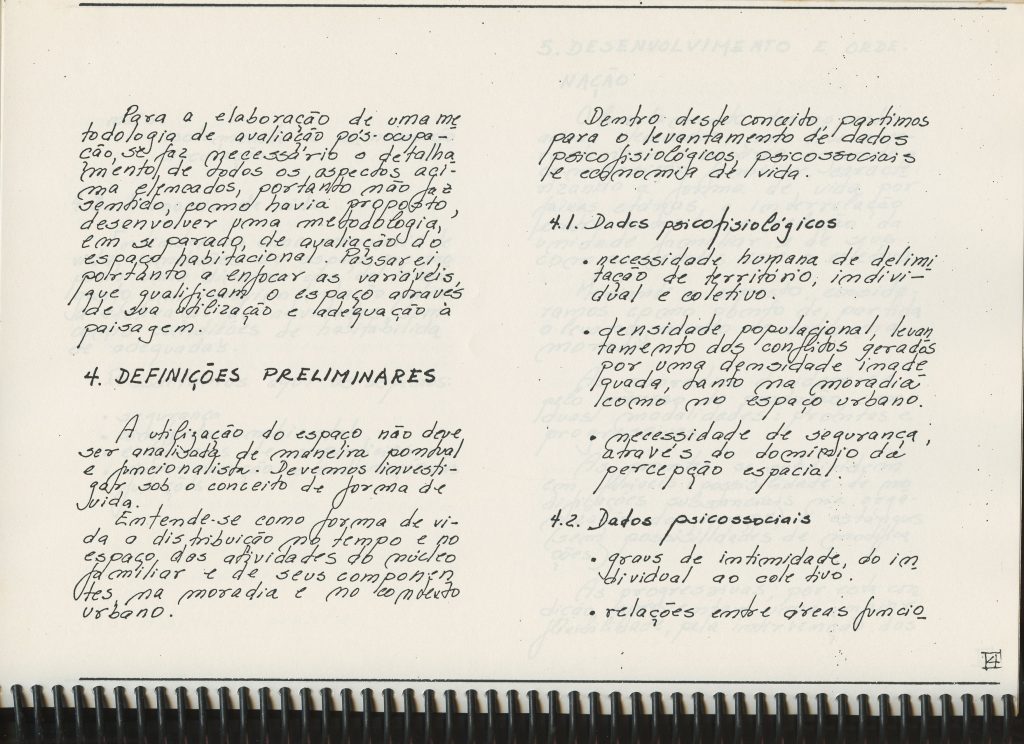 Para a elaboração de uma me
todologia de avaliação pós-ocupa-
ção, se faz necessário o detalha
mento, de todos os aspectos aci-
ma elencados, portanto não faz
sentido, como havia proposto,
desenvolver uma metodologia,
em separado, de avaliação do
espaço habitacional. Passarei,
portanto a enfocar as variáveis,
que qualificam o espaço através
de sua utilização e adequação à
paisagem.
4. DEFINIÇÕES PRELIMINARES
A utilização do espaço não deve
ser analisada de maneira pontual
e funcionalista. Devemos investi-
gar sob o conceito de forma de
vida.
Entende-se como forma de vi-
da a distribuição no tempo e no
espaço, das atividades do núcleo
familiar e de seus componen
tes, na moradia e no contexto
urbano.
Dentro deste conceito, partimos
para o levantamento de dados
psicofisiológicos, psicossociais
e economia de vida.
4.1. Dados psicofisiológicos
• necessidade humana de delimi
tação de território, indivi-
dual e coletivo.
• densidade populacional, levan
tamento dos conflitos gerados
por uma densidade inade
quada, tanto na moradia
como no espaço urbano.
• necessidade de segurança,
através do domínio da
percepção espacial
4.2. Dados psicossociais
• graus de intimidade, do in
dividual ao coletivo.
• relações entre áreas funcio_